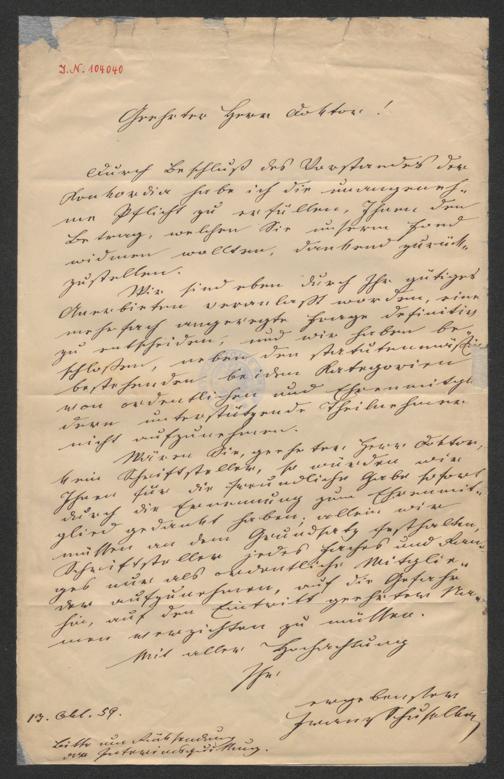 I.N. 104040
Geehrter Herr Doktor!
Durch Beschluß des Vorstandes der
Konkordia habe ich die unangeneh-
me Pflicht zu erfüllen, Ihnen den
Betrag, welchen Sie unserm Fond
widmen wollten, dankend zurück-
zustellen.
Wir sind eben durch Ihr gütiges
Anerbieten veranlaßt worden, eine
mehrfach angeregte Frage definitiv
zu entscheiden, und wir haben be-
schlossen, neben den statutenmäßig
bestehenden beiden Kategorien
von ordentlichen und Ehrenmitglie
dern unterstützende Theilnehmer
nicht aufzunehmen.
Wären Sie, geehrter Herr Doktor,
kein Schriftsteller, so würden wir
Ihnen für die freundliche Gabe sofort
durch die Ernennung zum Ehrenmit-
glied gedankt haben; allein wir
müssen an dem Grundsatz festhalten,
Schriftsteller jedes Faches und Ran-
ges nur als ordentliche Mitglie-
der aufzunehmen, auf die Gefahr
hin, auf den Eintritt geehrter Na-
men verzichten zu müssen.
Mit aller Hochachtung
Ihr
ergebenster
Franz Schuselka
13. Okt. 59.
Bitte um Rücksendung
der Interimsquittung.